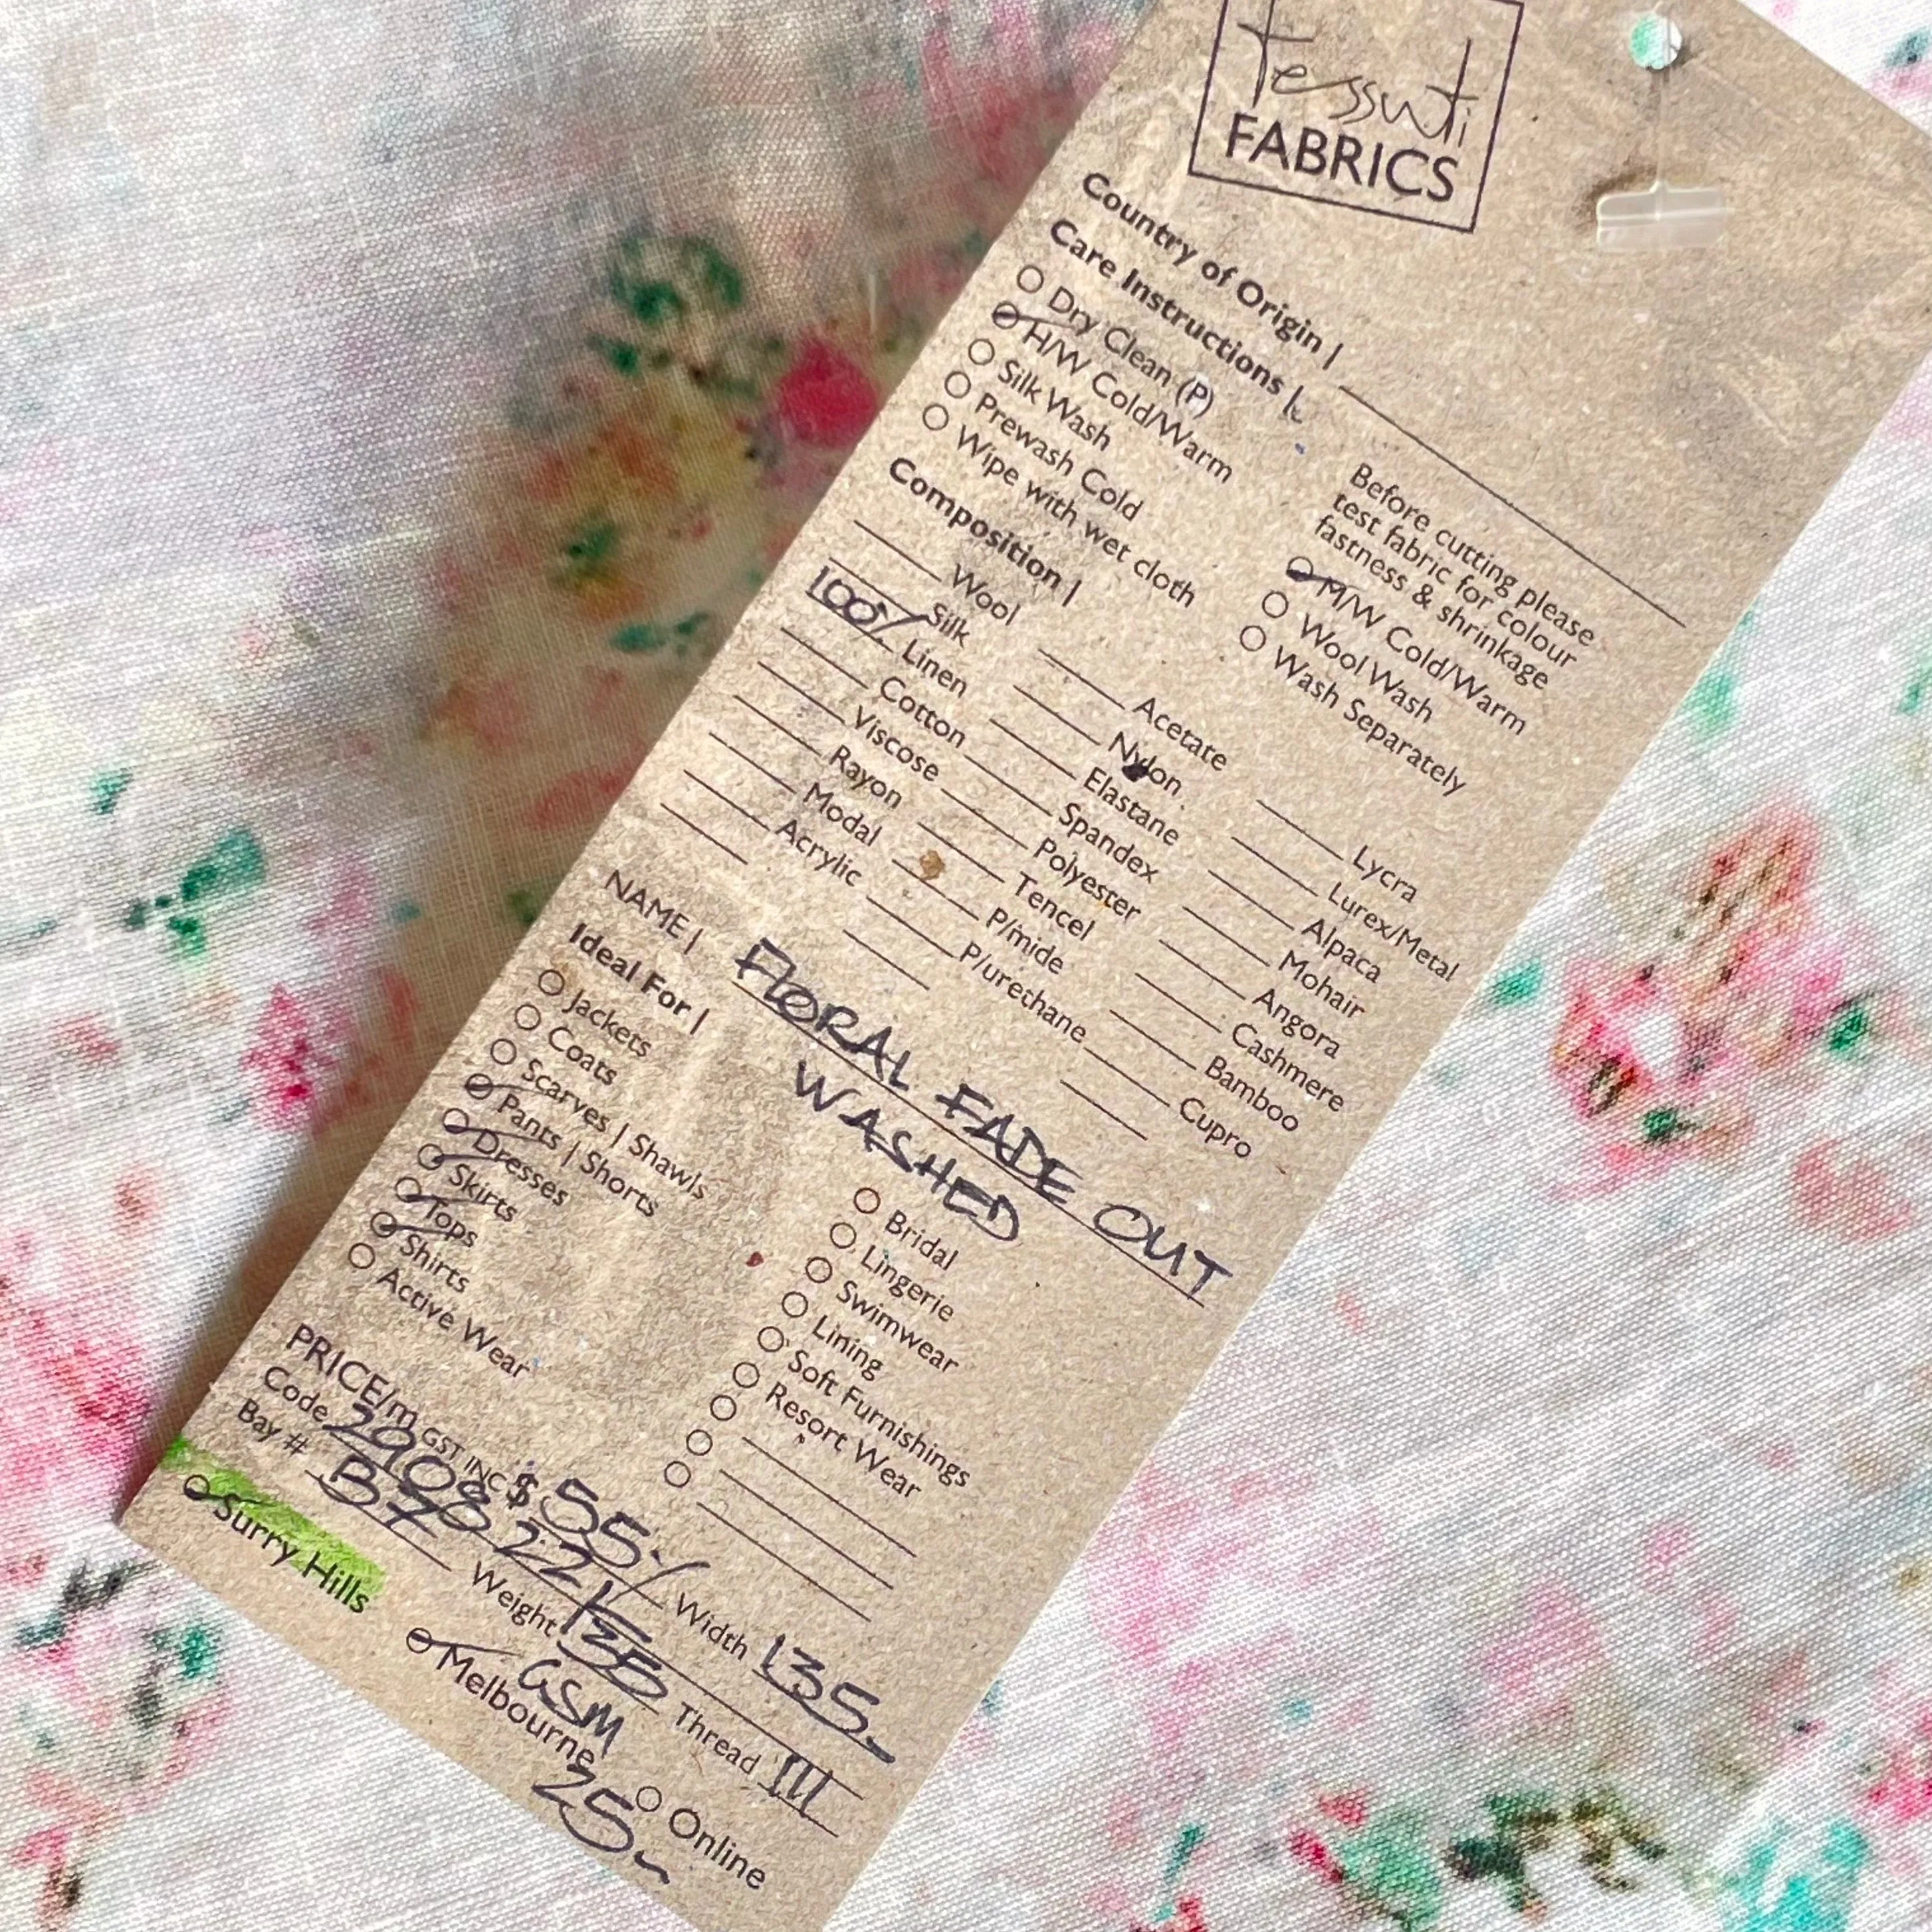 tessuti
FABRICS
Country of Origin |
Care Instructions |
Before cutting please
test fabric for colour
fastness & shrinkage
Dry Clean (P)
H/W Cold/Warm
Silk Wash
Prewash Cold
Wipe with wet cloth
M/W Cold/Warm
Wool Wash
Wash Separately
Composition |
Wool
Silk
100% Linen
Cotton
Viscose
Rayon
Modal
Acrylic
Acetate
Nylon
Elastane
Spandex
Polyester
Tencel
P/mide
P/urethane
Lycra
Lurex/Metal
Alpaca
Mohair
Angora
Cashmere
Bamboo
Cupro
NAME | FLORAL FADE OUT
WASHED
Ideal For |
Jackets
Coats
Scarves | Shawls
Pants | Shorts
Dresses
Skirts
Tops
Shirts
Active Wear
Bridal
Lingerie
Swimwear
Lining
Soft Furnishings
Resort Wear
PRICE/m GST INC $ 55
Code Width 135
Bay # B7 Weight 135 GSM Thread
Surry Hills
Melbourne
Online
25